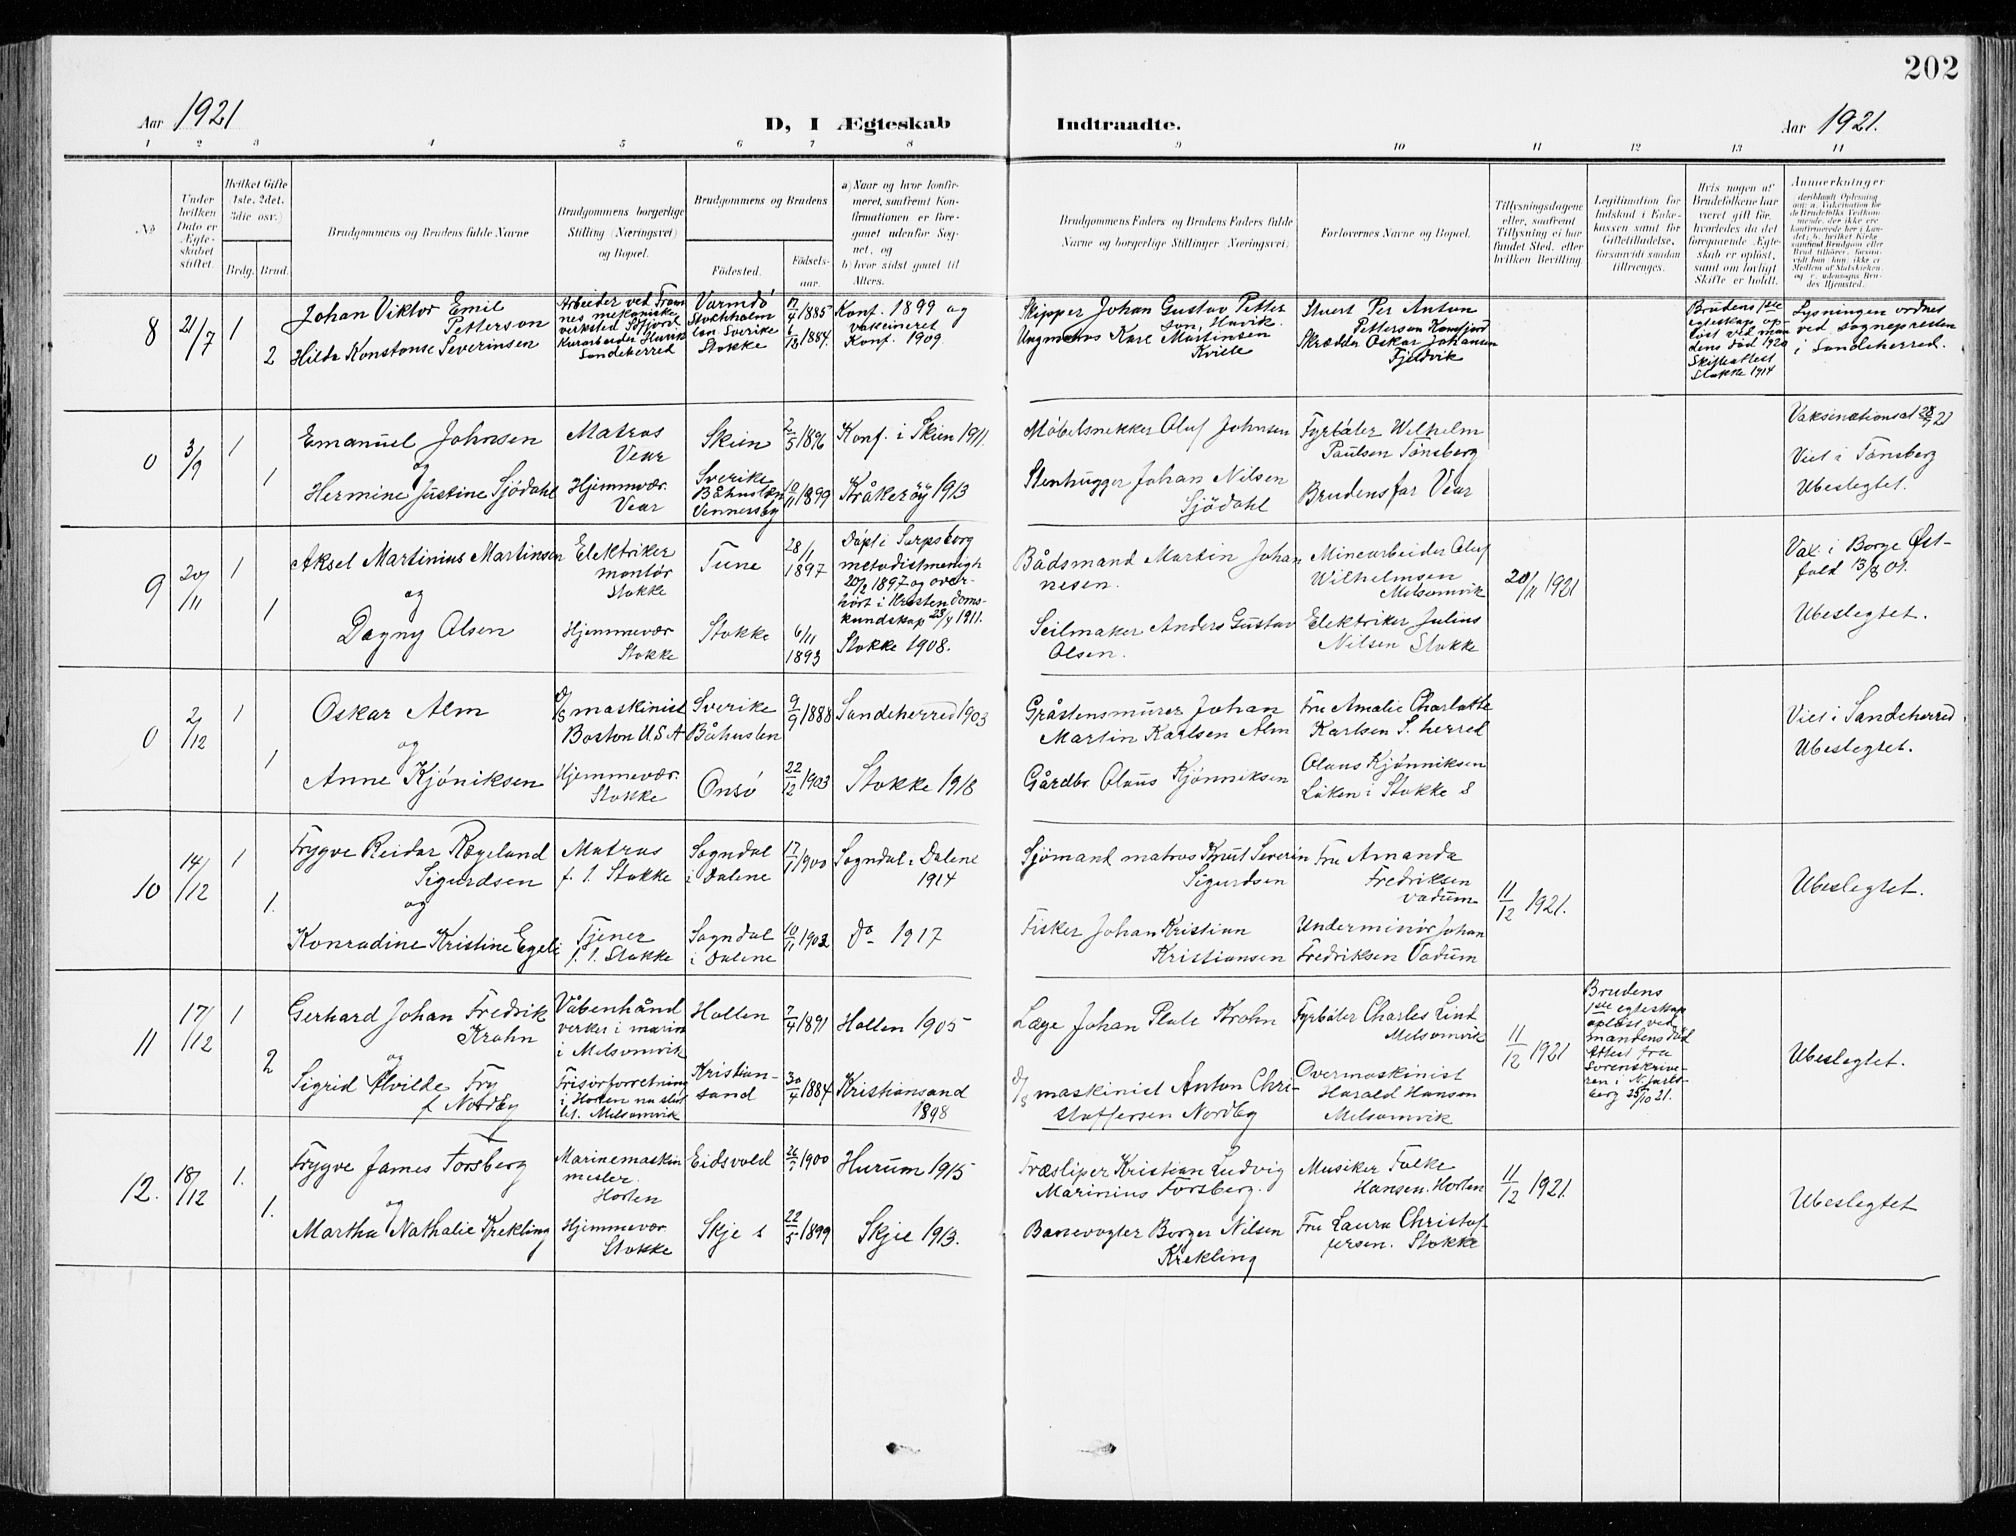 202
Aar 1921
D, I Ægteskab
Indtraadte.
Aar 1921.
1 2 3 4 5 6 7 8 9 10 11 12 13 14
No
Under hvilken Dato er Ægteskabet stiftet
Hvilket Gifte 1ste, 2det, 3die osv.)
Brdg. Brud.
Brudgommens og Brudens fulde Navne
Brudgommens borgerlige Stilling (Næringsvei) og Bopæl.
Brudgommens og Brudens
Fødested.
Fødselsaar.
a) Naar og hvor konfirmeret, saafremt Konfirmationen er foregaaet udenfor Sognet, og
b) hvor sidst gaaet til Alters.
Brudgommens Faders og Brudens Faders fulde Navne og borgerlige Stillinger (Næringsvei)
Forlovernes Navne og Bopæl.
Tillysningsdagene eller, saafremt Tillysning ei har fundet Sted, efter hvilken Bevilling
Legitimation for Indskud i Enkekassen samt for Giftetilladelse, forsaavidt saadan tiltrænges.
Hvis nogen af Brudefolkene har været gift før, hvorledes da det foregaaende Ægteskab er opløst, samt om lovligt Skifte er holdt.
Anmærkninger
8 21/7 1 Johan Viktor Emil
Petterson
2 Hilda Konstanse Severinsen
Arbeider ved Framnes mekaniske
verksted Søfjord
Sandeherred
Varmdö
Stokholm
län Sverike
Stokke
17/4 1885
6/12 1884.
Konf. 1899 og
vakcineret
Konf. 1909
Skipper Johan Gustav Petterson, Huvik.
Kare Martinsen
Stuert Per Anton
Petterson
Skrædder Oskar Johansen
Fjeldvik
Brudens 1ste
egteskap opløst ved mandens død 1920
Skifteattest
Stokke 1914
Lysningen ordnet
ved sognepresten
i Sandeherred.
0 3/9 1 Emanuel Johnsen
og
1 Hermine Justine Sjödahl
Matros
Vear
Hjemmevær.
Vear
Skien
Sverike
Båhuslæn
Vennersby
2/5 1896
10/11 1899
Konf. i Skien 1911.
Kråkerøy 1913
Møbelsnekker Oluf Johnsen
Stenhugger Johan Nilsen
Sjödahl
Fyrbøter Wilhelm
Paulsen Tønsberg
Brudens far Vear
Vaksinationsat 28/7 21
Viet i Tønsberg
Ubeslegtet.
9 20/11 1 Aksel Martinius Martinsen
og
1 Dagny Olsen
Elektriker
montør
Stokke
Hjemmevær
Stokke
Tune
Stokke
28/1
1897
6/11
1893
Døpt i Sarpsborg
metodistmenigh
20/2 1897 og overhørt i kristendomskundskap 23/4 1911.
Stokke 1908.
Bådsmand Martin Johannesen.
Seilmaker Anders Gustav
Olsen.
Minearbeider Oluf
Wilhelmsen
Melsomvik
Elektriker Julius
Nilsen Stokke
20/11 1921
Vax. i Borge Østfold 13/8 01.
Ubeslegtet.
0 2/12 1 Oskar Alm
og
1 Anne Kjøniksen
D/S maskinist
Boston U.S.A
Hjemmevær.
Stokke
Sverike
Båhuslen
Onsö
9/9 1888
22/12 1903
Sandeherred 1903
Stokke 1918
Gråstensmurer Johan
Martin Karlsen Alm
Gårdbr. Olaus Kjønniksen
Fru Amalie Charlotte
Karlsen S. herred
Olaus Kjønniksen
Løken i Stokke s
Viet i Sandeherred.
Ubeslegtet.
10 14/12 1 Trygve Reidar Rægeland
Sigurdsen
og
1. Konradine Kristine Egeli
Matros
f. t. Stokke
Tjener
f. t. Stokke
Sogndal
i Dalene
Sogndal
i Dalene
17/1 1900
10/11 1902
Sogndal i Dalene
1914
Do 1917
Sjømand matros Knut Severin
Sigurdsen
Fisker Johan Kristian
Kristiansen
Fru Amanda
Fredriksen
Vadum
Underminør Johan
Fredriksen Vadum
11/12 1921.
Ubeslegtet.
11 17/12 1 Gerhard Johan Fredrik
Krohn
og
2 Sigrid Alvilde Fry
f Nordby
Våbenhåndverker i marin
i Melsomvik
Frisørforretning
i Horten
Melsomvik
Hollen
Kristiansand
7/4 1891
30/4 1884
Hollen 1905
Kristiansand
1898
Læge Johan Plate Krohn
D/S maskinist Anton Christoffersen Nordby
Fyrbøter Charles Lint
Melsomvik
Overmaskinist
Harald Hansen
Melsomvik
11/12 1921
Brudens
1ste egteskap
opløst ved
mandens død
Attest fra
Sorenskriveren i N. Jarlsberg 25/10 21.
Ubeslegtet.
12. 18/12 1. Trygve James Forsberg
og
1. Martha Nathalie Krekling
Marinemaskin
mester
Horten
Hjemmevær
Stokke
Eidsvold
Skje s
1900
22/5 1899
Hurum 1915
Skjee 1913.
Træsliper Kristian Ludvig
Marinius Forsberg.
Banevogter Borger Nilsen
Krekling
Musiker Falke
Hansen. Horten
Fru Laura Christoffersen. Stokke
11/12 1921.
Ubeslegtet